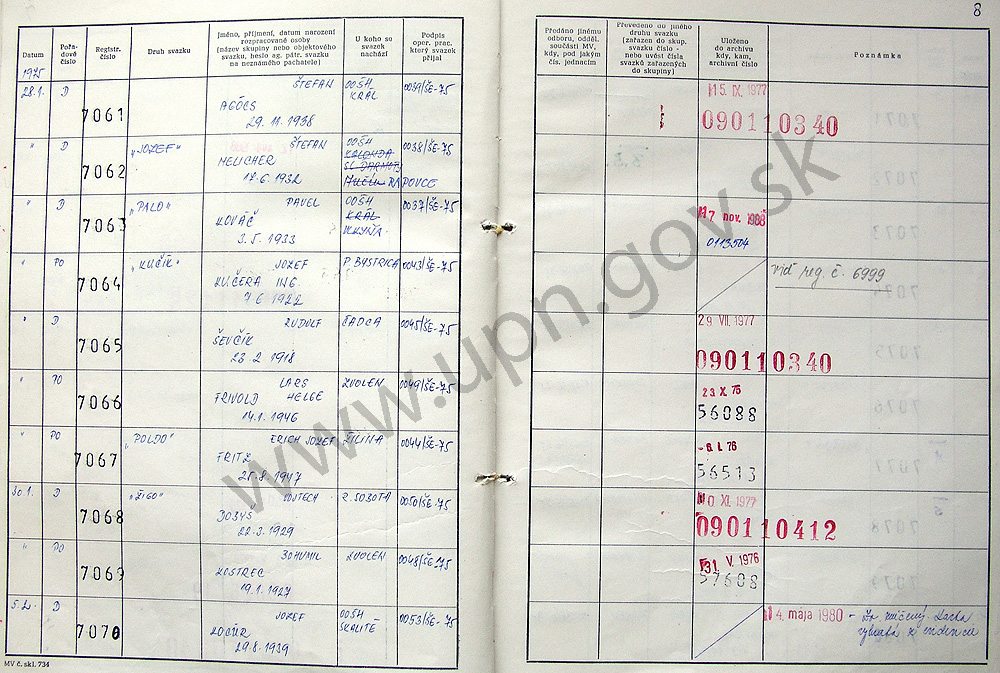 8
Datum
Pořadové číslo
Registr. číslo
Druh svazku
Jméno, příjmení, datum narození rozpracované osoby
(název skupiny nebo objektového svazku, heslo ag. pátr. svazku na neznámého pachatele)
U koho se svazek nachází
Podpis oper. prac. který svazek přijal
Předáno jinému odboru, odděl. součásti MV, kdy, pod jakým čís. jednacím
Převedeno do jiného druhu svazku
(zařazen do skup. svazku číslo - nebo uvést čísla svazků zařazených do skupiny)
Uloženo do archivu kdy, kam, archivní číslo
Poznámka
1975
28.1. D 7061 ŠTEFAN AGÓCS 29.11.1938 OOŠH KRÁL ŠE-75 15. IX. 1977 090110340
" D 7062 "JOZEF" ŠTEFAN MELICHER 17.6.1932 OOŠH 0038/ŠE-75
" D 7063 "PALO" PAVEL KOVÁČ 3.5.1933 OOŠH KRÁL 0037/ŠE-75 17 nov. 1988 0113504
" PO 7064 "KUČÍK" JOZEF KUČERA ING. 7.6.1922 P. BYSTRICA 0043/ŠE-75 viď reg. č. 6999
" D 7065 RUDOLF ŠEVČÍK 23.2.1918 ČADCA 0045/ŠE-75 29 VII. 1977 090110340
" PO 7066 LARS HELGE FRIVOLD 14.1.1946 ZVOLEN 0049/ŠE-75 23 X. 75 56088
" PO 7067 "POLDO" ERICH JOZEF FRITZ 25.8.1947 ŽILINA 0044/ŠE-75 -6. I. 76 56513
30.1. D 7068 "ŽIGO" VOJTECH 22.3.1929 R. SOBOTA 0050/ŠE-75 10 XI. 1977 090110412
" PO 7069 BOHUMIL KOSTREC 19.1.1927 ZVOLEN 0048/ŠE-75 31. V. 1976 57608
5.2. D 7070 JOZEF KOCÚR 29.8.1939 OOŠH SKALITÉ 0053/ŠE-75 14. mája 1980 -
MV č. skl. 734
www.upn.gov.sk